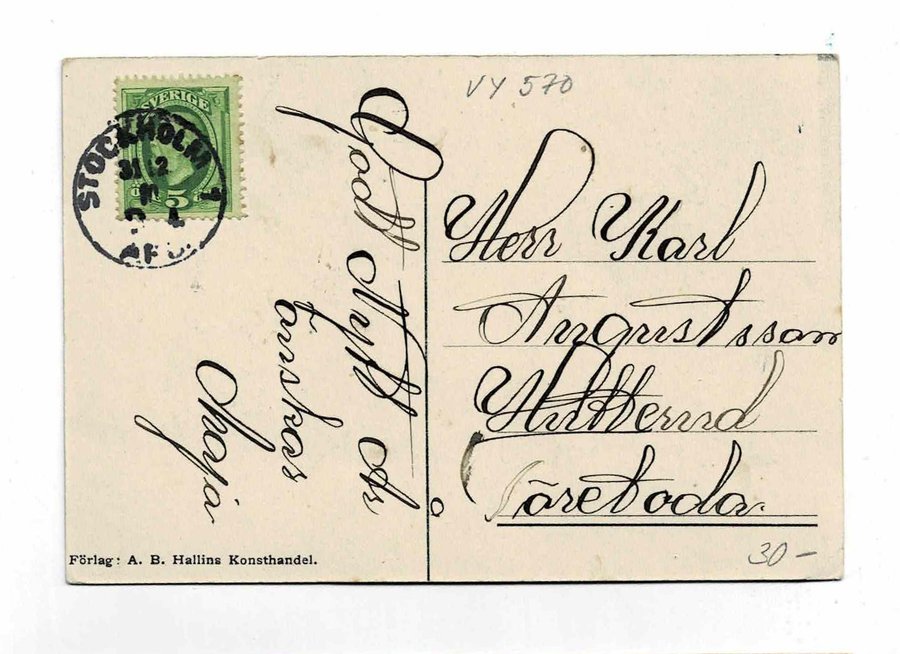 VY 570
SVERIGE
5
STOCKHOLM 1
31 12
AFG.
Godt Nytt År
önskas
Maja
Herr Karl
Augustsson
Töreboda
30 –
Förlag: A. B. Hallins Konsthandel.